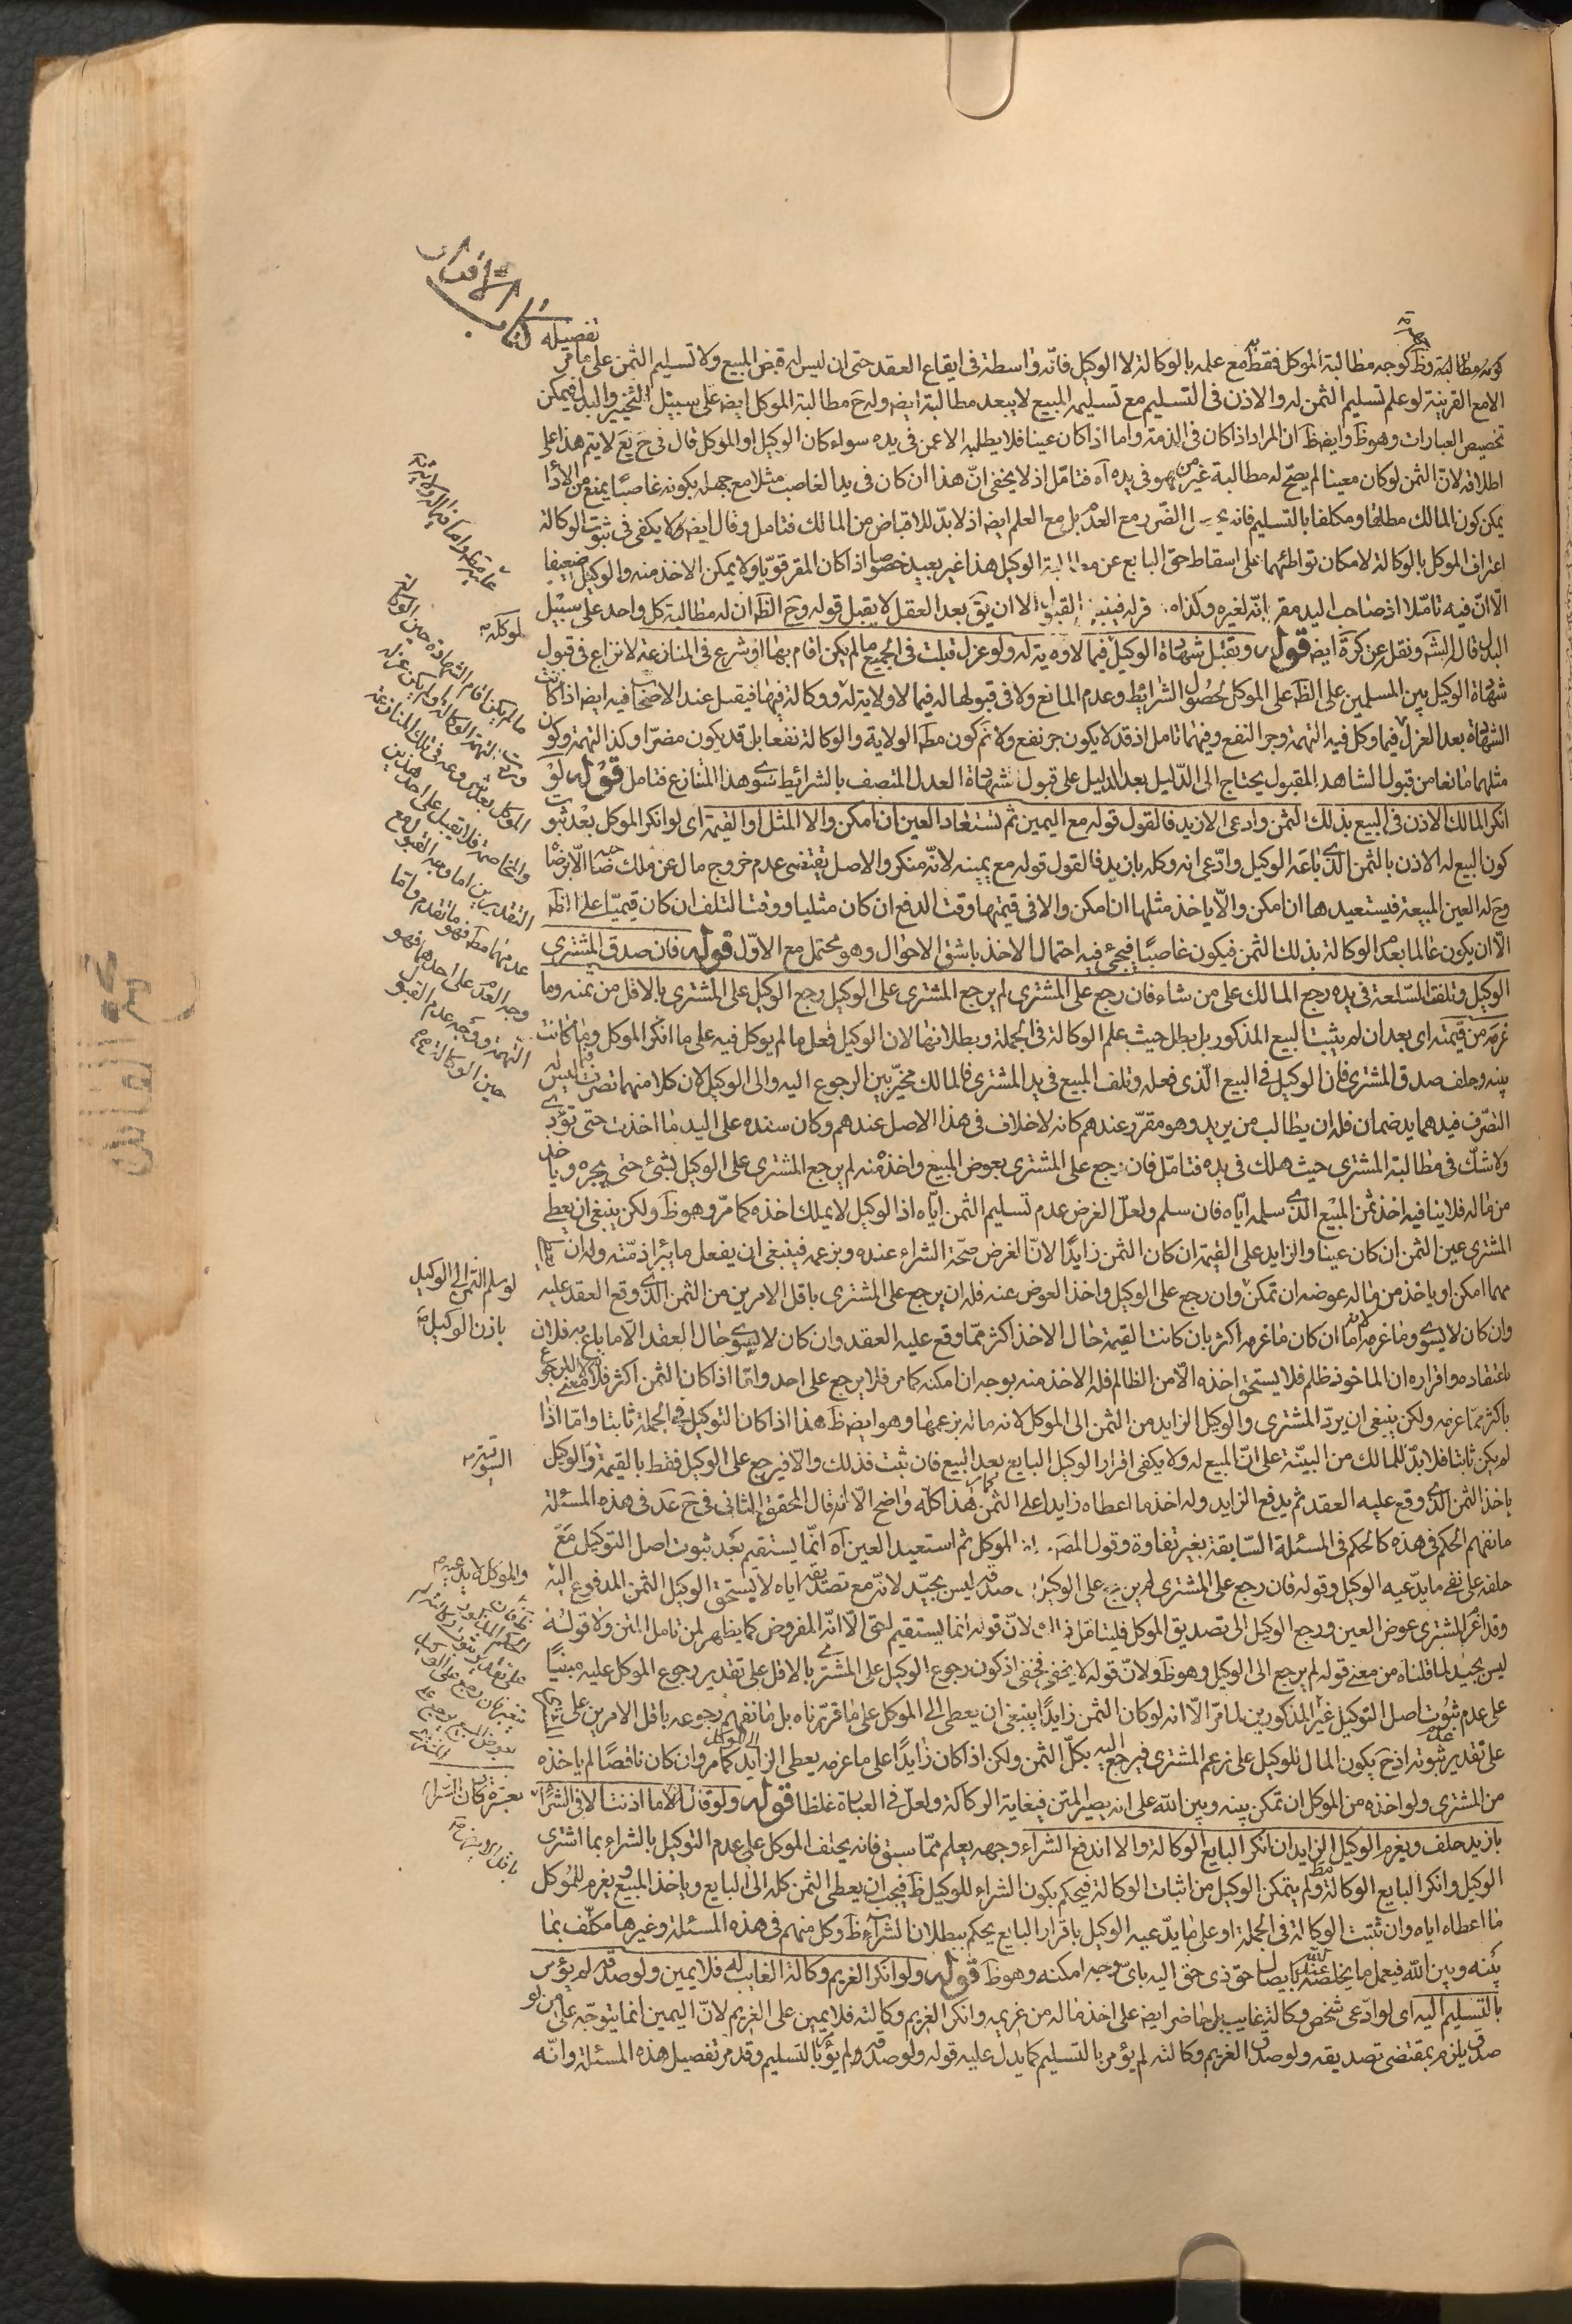 كتاب الاقرار
تفصيله
كونه مطالبة وظ كوجه مطالبة الموكل فقط مع علمه بالوكالة لا الوكيل فانّه واسطة فى ايقاع العقد حتى ان ليس له قبض المبيع ولا تسليم الثمن على ما مر
الا مع القرينة لو علم تسليم الثمن له والاذن فى التسليم مع تسليمه المبيع لا يبعد مطالبة ايضه وله ح مطالبة الموكل ايضه على سبيل التخيير والبدل ويمكن
تخصيص العبارات وهو ظ وايضه ظ ان المراد اذا كان فى الذمة واما اذا كان عينا فلا يطلبه الا عمن فى يده سواء كان الوكيل او الموكل قال فى ح يع لا يتم هذا على
اطلاقه لان الثمن لو كان معينا لم يصحّ له مطالبة غير من هو فى يده آه فتامّل اذ لا يخفى انّ هذا ان كان فى يد الغاصب مثلا مع جهله بكونه غاصبًا يمنع من الاداء
يمكن كون المالك مطلقا ومكلفا بالتسليم فانه الضرر مع العدم بل مع العلم ايضه اذ لا بدّ للاقباض من المالك فتامل وقال ايضه ولا يكفى فى ثبوت الوكالة
اعتراف الموكل بالوكالة لامكان تواطئهما على اسقاط حق البايع عن مطالبة الوكيل هذا غير بعيد خصوصا اذا كان المقر قويّا ولا يمكن الاخذ منه والوكيل ضعيفا
الّا انّ فيه تامّلا اذ صاحب اليد مقر انّه لغيره وكذاه قوله فينبغى القبول الا ان يق بعد العقل لا يقبل قوله وح الظ ان له مطالبة كل واحد على سبيل
البدل قال الشه ونقل عن كرة ايضه قوله ويقبل شهادة الوكيل فيما لا ولاية له ولو عزل قبلت فى الجميع ما لم يكن اقام بها او شرع فى المنازعة لا نزاع فى قبول
شهادة الوكيل بين المسلمين على الظ على الموكل لحصول الشرائط وعدم المانع ولا فى قبولها له فيما لا ولاية له ووكالة فيها فيقبل عند الاصحاب فيه ايضه اذا كانت
الشهادة بعد العزل فيما وكل فيه التهمة وجر النفع وفيهما تامل اذ قد لا يكون جر نفع ولا نم كون مطه الولاية والوكالة نفعا بل قد يكون مضرّا وكذا التهمة وكون
مثلهما مانعا من قبول الشاهد المقبول يحتاج الى الدّليل بعد الدليل على قبول شهادة العدل المتصف بالشرائط سوى هذا المتنازع فتامل قوله لو
انكر المالك الاذن فى البيع بذلك الثمن وادعى الازيد فالقول قوله مع اليمين ثم تستعاد العين ان امكن والا المثل او القيمة اى لو انكر الموكل بعد ثبوت
كون البيع له الاذن بالثمن الذى باعه الوكيل وادّعى انه وكله بازيد فالقول قوله مع يمينه لانّه منكر والاصل يقتضى عدم خروج مال عن ملك صاحبه الّا برضا
وح له العين المبيعة فيستعيدها ان امكن والّا ياخذ مثلها ان امكن والا فى قيمتها وقت الدفع ان كان مثليا ووقت التلف ان كان قيميّا على الظ
الّا ان يكون عالما بعدم الوكالة بذلك الثمن فيكون غاصبًا فيجئ فيه احتمال الاخذ باشق الاحوال وهو محتمل مع الاوّل قوله فان صدق المشترى
الوكيل وتلف السّلعة فى يده رجع المالك على من شاء فان رجع على المشترى لم يرجع المشترى على الوكيل رجع الوكيل على المشترى بالاقل من ثمنه وما
غرمه من قيمته اى بعد ان لم يثبت البيع المذكور بل بطل حيث علم الوكالة فى الجملة وبطلانها لان الوكيل فعل ما لم يوكل فيه على ما انكر الموكل وما كانت
بينه وحلف صدق المشترى فان الوكيل فى البيع الّذى فعله وتلف المبيع فى يد المشترى فالمالك مخيّر بين الرجوع اليه والى الوكيل لان كلا منهما تصرف فيما ليس له
التصّرف فيدهما يد ضمان فله ان يطالب من يريد وهو مقرّر عندهم كانه لا خلاف فى هذا الاصل عندهم وكان سنده على اليد ما اخذت حتى تؤدى
ولا شكّ فى مطالبة المشترى حيث هلك فى يده فتامّل فان رجع على المشترى بعوض المبيع واخذه منه لم يرجع المشترى على الوكيل بشئ حتى يجره وياخذ
من ماله فلا ينافيه اخذ ثمن المبيع الذى سلمه ايّاه فان سلم ولعلّ الغرض عدم تسليم الثمن ايّاه اذ الوكيل لا يملك اخذه كما مرّ وهو ظ ولكن ينبغى ان يعطى
المشترى عين الثمن ان كان عينا والزايد على القيمة ان كان الثمن زايدًا لانّ الغرض صحّة الشراء عنده وبزعمه فينبغى ان يفعل ما يبرأ ذمّته وله ان
مهما امكن او ياخذ من ماله عوضه ان تمكن وان رجع على الوكيل واخذ العوض عنه فله ان يرجع على المشترى باقل الامرين من الثمن الذى وقع العقد عليه
وان كان لا يسوى وما غرمه اما ان كان ما غرمه اكثر بان كانت القيمة حال الاخذ اكثر ممّا وقع عليه العقد وان كان لا يسوى حال العقد الّا ما باع به فلان
باعتقاده واقراره ان الماخوذ ظلم فلا يستحق اخذه الّا من الظالم فله الاخذ منه بوجه ان امكنه كما مر فلا يرجع على احد وامّا اذا كان الثمن اكثر فلا معنى للرجوع
باكثر ممّا غرمه ولكن ينبغى ان يردّ المشترى والوكيل الزايد من الثمن الى الموكل لانه ماله بزعمهما وهو ايضه ظ هذا اذا كان التوكيل فى الجملة ثابتا وامّا اذا
لم يكن ثابتا فلا بدّ للمالك من البيّنة على انّ المبيع له ولا يكفى اقرار الوكيل البايع بعد البيع فان ثبت فذلك والّا فيرجع على الوكيل فقط بالقيمة والوكيل
ياخذ الثمن الذى وقع عليه العقد ثم يدفع الزايد وله اخذ ما اعطاه زايدا على الثمن هذا كلّه واضح الّا انه قال المحقق الثانى فى ح عد فى هذه المسئلة
ما نفهم الحكم فى هذه كالحكم فى المسئلة السّابقة بغير تفاوة وقول المصه الموكل ثم استعيد العين آه انمّا يستقيم بعد ثبوت اصل التوكيل مع
حلفه على نفى ما يدّعيه الوكيل وقوله فان رجع على المشترى لم يرجع على الوكيل صدقه ليس بجيّد لانّه مع تصديقه اياه لا يستحق الوكيل الثمن المدفوع اليه
وقد اغر المشترى عوض العين ورجع الوكيل الى تصديق الموكل فليتامّل لانّ قوله انما يستقيم لحق الّا انّه المفروض كما يظهر لمن تامل المتن ولا قوله
ليس بجيد لما قلناه من معنى قوله لم يرجع الى الوكيل وهو ظ ولانّ قوله لا يخفى فخفى اذ كون رجوع الوكيل على المشترى بالاقل على تقدير رجوع الموكل عليه مبنيًا
على عدم ثبوت اصل التوكيل غير المذكورين لما مرّ الّا انه لو كان الثمن زايدًا ينبغى ان يعطى الى الموكل على ما قررناه بل ما نفهم رجوعه باقل الامرين على
على تقدير ثبوته اذ ح يكون المال للوكيل على زعم المشترى فيرجع اليه بكلّ الثمن ولكن اذا كان زايدًا على ما غرمه يعطى الزايد كما مر وان كان ناقصًا لم ياخذه
من المشترى ولو اخذه من الموكل ان تمكن بينه وبين الله على انه يصير المتن فيغاية الركاكة ولعلّ فى العبارة غلطا قوله ولو قال ما اذنت الا فى الشراء
بازيد حلف ويغرم الوكيل الزايد ان انكر البايع الوكالة والا اندفع الشراء وجهه يعلم ممّا سبق فانه يحلف الموكل على عدم التوكيل بالشراء بما اشترى
الوكيل وانكر البايع الوكالة ولم يتمكن الوكيل من اثبات الوكالة فيحكم بكون الشراء للوكيل ظ فيجب ان يعطى الثمن كله الى البايع وياخذ المبيع ويغرم للموكل
ما اعطاه اياه وان ثبتت الوكالة فى الجملة او على ما يدّعيه الوكيل باقرار البايع يحكم ببطلان الشراء ظ وكل منهم فى هذه المسئلة وغيرها مكلّف بما
بينه وبين الله فيعمل ما يخلصه عند الله بايصال حق ذى حق اليه باىّ وجه امكنه وهو ظ قوله ولو انكر الغريم وكالة الغايب له فلا يمين ولو صدقه لم يؤمر
بالتسليم اليه اى لو ادّعى شخص وكالة غايب بل حاضر ايضه على اخذ ماله من غريمه وانكر الغريم وكالته فلا يمين على الغريم لانّ اليمين انما يتوجّه على من لو
صدق يلزم بمقتضى تصديقه ولو صدق الغريم وكالته لم يؤمر بالتسليم كما يدلّ عليه قوله ولو صدقه لم يؤمر بالتسليم وقد مر تفصيل هذه المسئلة وانّه
لوكله
ما لم يكن اقام الشهادة حين الوكالة
الموكل بعد شروعه فى تلك المنازعة
والمخاصمة فلا تقبل على احد هذين
التقديرين اما وجه القبول مع
عدمهما مطه فهو ما تقدم وامّا
وجه العدم على احدهما فهو
التهمة ووجه عدم القبول
حين الوكالة
لو سلم الثمن الى الوكيل
باذن الوكيل
السوقية
والموكل لا يدعيه
بعشرة فكان الشراء